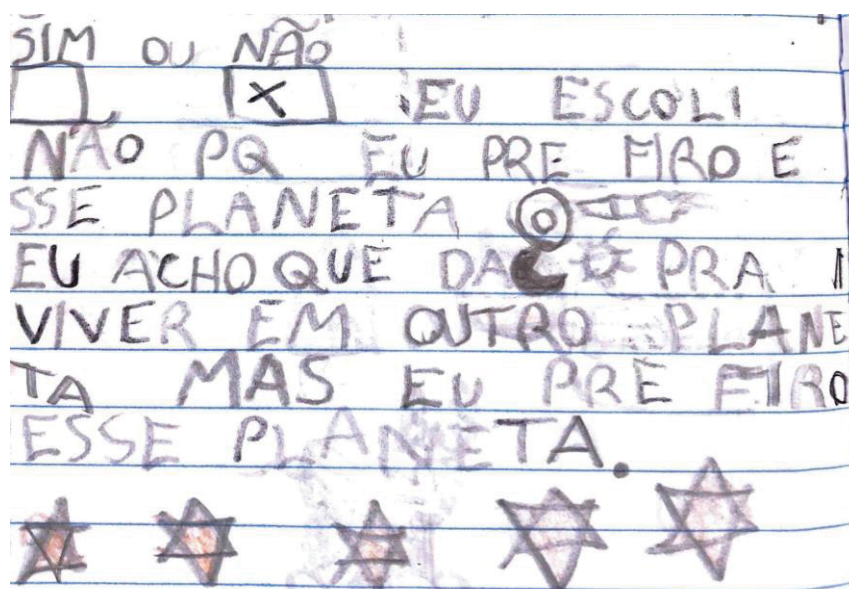 SIM OU NÃO
X EU ESCOLI
NÃO PQ EU PRE FIRO E
SSE PLANETA
EU ACHO QUE DA PRA
VIVER EM OUTRO PLANE
TA MAS EU PRE FIRO
ESSE PLANETA.